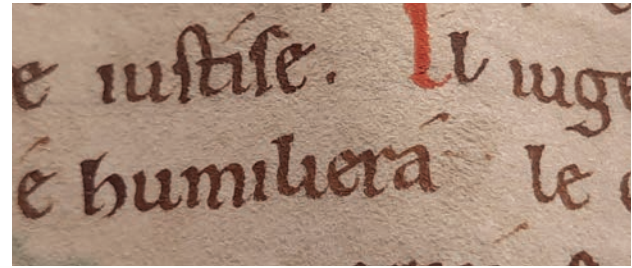 e iuſtíſe. Il iuge
é humilierá le